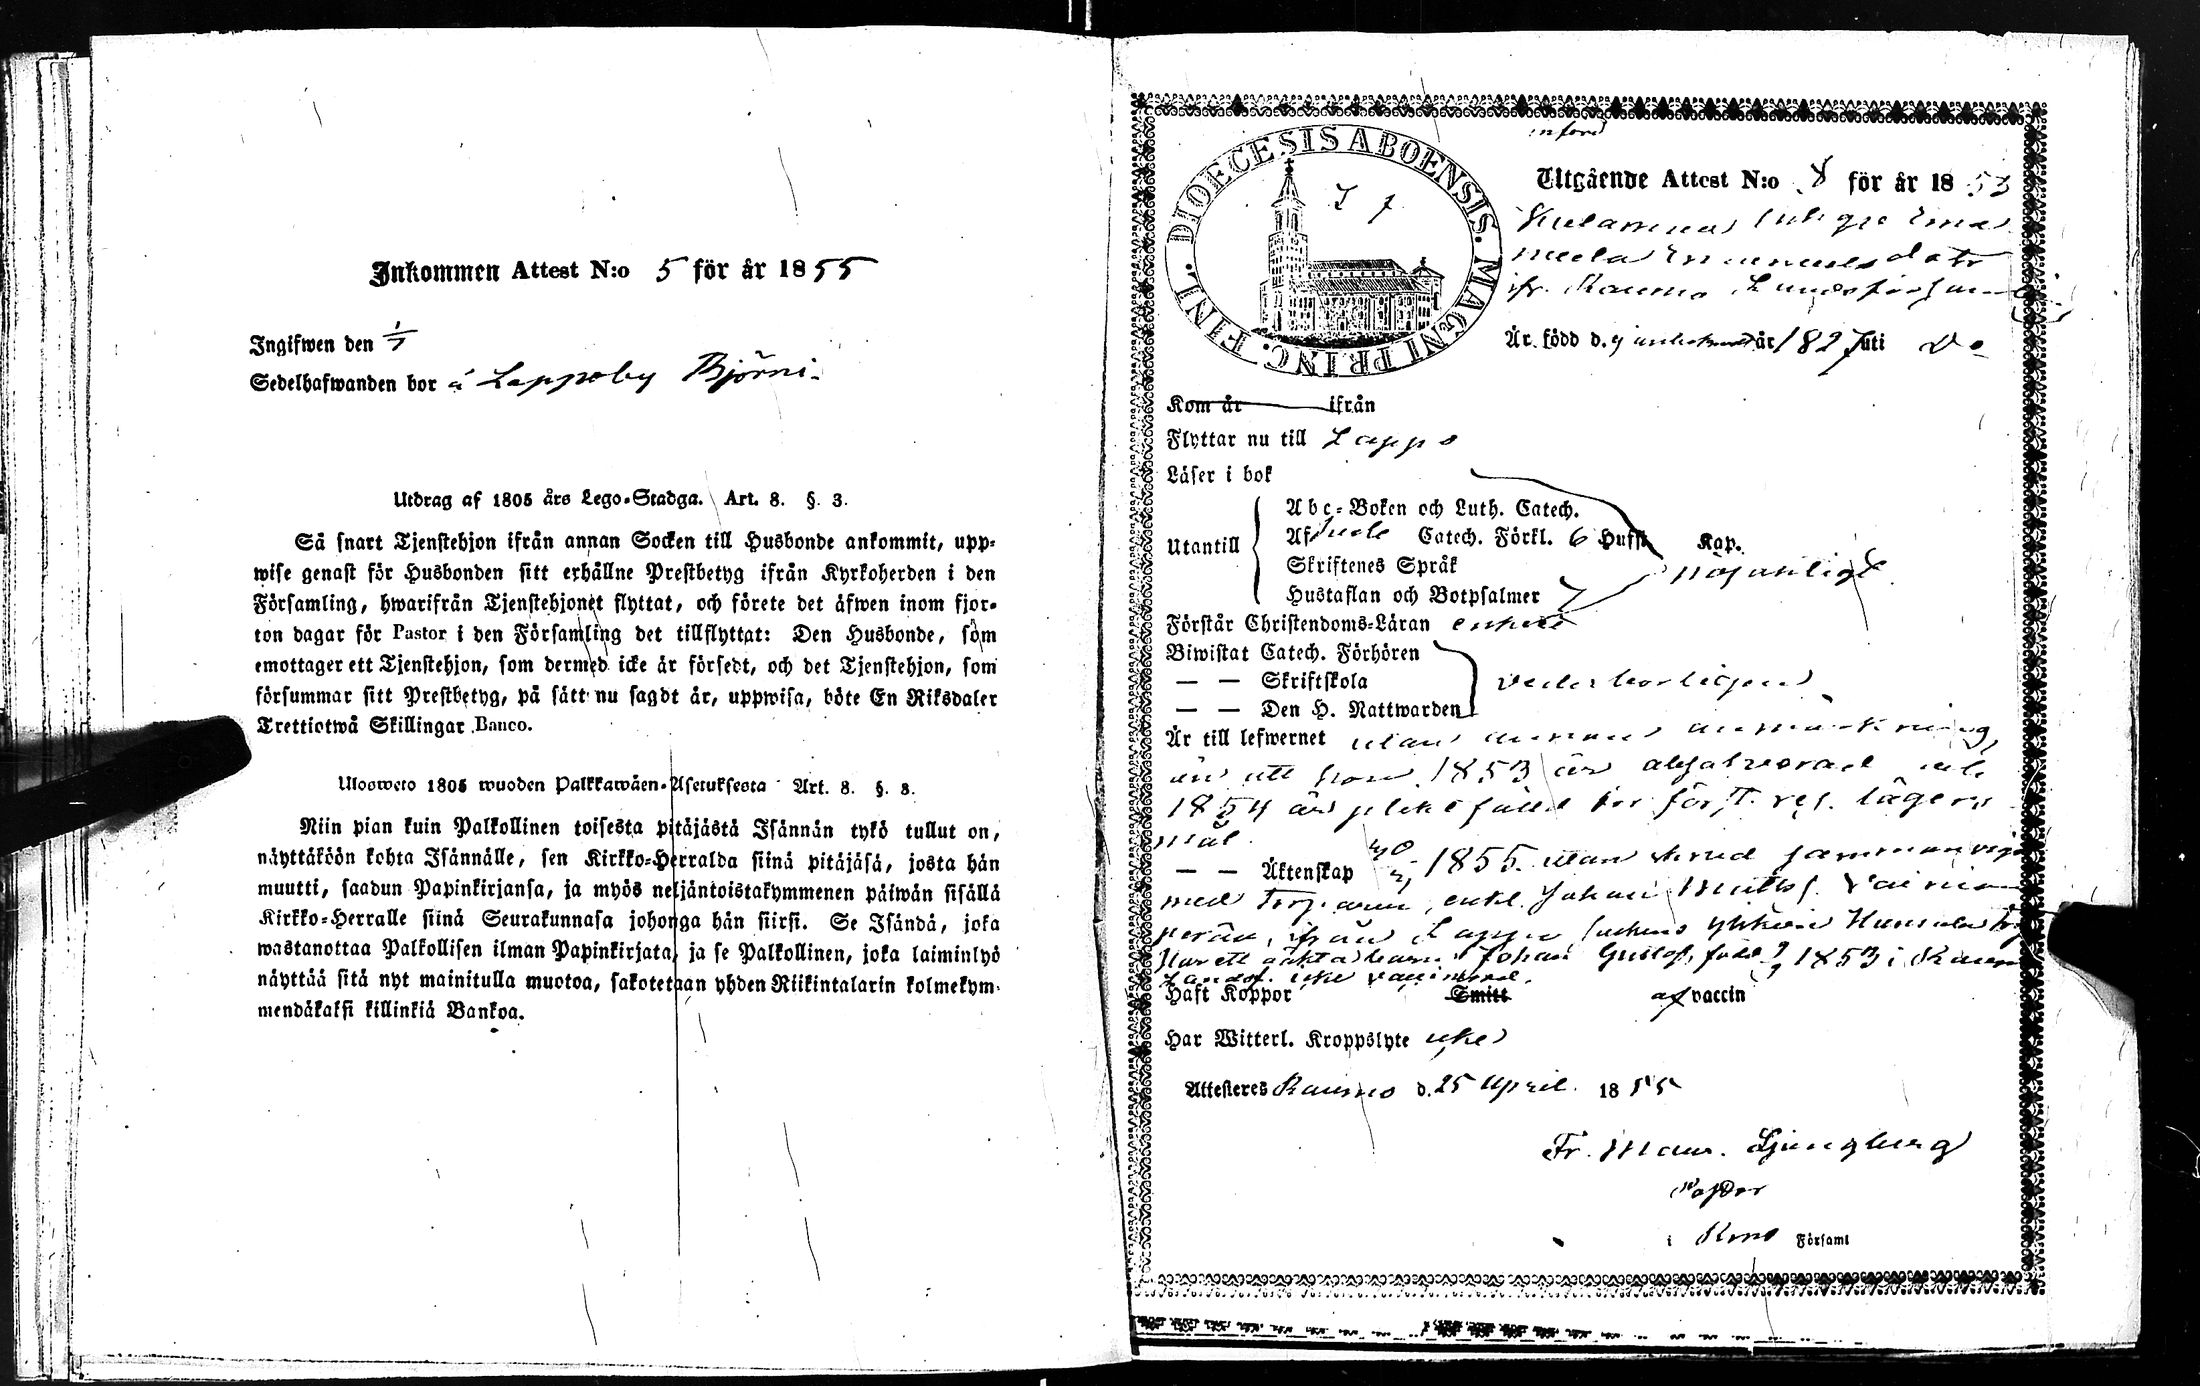 Inkommen Attest N:o 5 för år 1855
Ingifwen den 1/7
Sedelhafwanden bor å Lappoby Björni
Utdrag af 1805 års Lego-Stadga. Art. 8. §. 3.
Så snart Tjenstehjon ifrån annan Socken till Husbonde ankommit, upp-
wise genast för Husbonden sitt erhållne Prestbetyg ifrån Kyrkoherden i den
Församling, hwarifrån Tjenstehjonet flyttat, och förete det äfwen inom fjor-
ton dagar för Pastor i den Församling det tillflyttat: Den Husbonde, som
emottager ett Tjenstehjon, som dermed icke är försedt, och det Tjenstehjon, som
försummar sitt Prestbetyg, på sätt nu sagdt är, uppwisa, böte En Riksdaler
Trettiotwå Skillingar Banco.
Ulosweto 1805 wuoden Palkkawäen-Asetuksesta Art. 8. §. 3.
Niin pian kuin Palkollinen toisesta pitäjästä Isännän tykö tullut on,
näyttäköön kohta Isännälle, sen Kirkko-Herralda siinä pitäjäsä, josta hän
muutti, saadun Papinkirjansa, ja myös neljäntoistakymmenen päiwän sisällä
Kirkko-Herralle siinä Seurakunnasa johonga hän siirsi. Se Isändä, joka
wastanottaa Palkollisen ilman Papinkirjata, ja se Palkollinen, joka laiminlyö
näyttää sitä nyt mainitulla muotoa, sakotetaan yhden Riikintalarin kolmekym-
mendäkaksi killinkiä Bankoa.
DIOECESIS ABOENSIS. MAGNI PRINC. FINL.
införd
Utgående Attest N:o 8 för år 1853
fr. Raumo Landsförsamling
Är född d. år 182 uti Do
Kom år ifrån
Flyttar nu till Lappo
Läser i bok
Abc-Boken och Luth. Catech.
Utantill Af Catech. Förkl. 6 Hufst. Kap.
Skriftenes Språk nöjaktligt
Hustaflan och Botpsalmer
Förstår Christendoms-Läran enkelt
Biwistat Catech. Förhören
— — Skriftskola vederbörligen
— — Den H. Nattwarden
Är till lefwernet utan annan anmärkning
än att hon 1853 är absolverad och
1854 är pliktfälld för först. res. lägers
mål.
— — Äktenskap 1855 utan
med enkl. Johan
från Lappo
Har ett oäkta barn Johan Gustaf, född 1853 i Raumo
Landsf. icke vaccinerad.
Haft Koppor Smitt af vaccin
Har Witterl. Kroppslyte icke
Attesteras Raumo d. 25 April 1855
Fr. Maur. Ljungberg
Pastor
i Rmo Församl